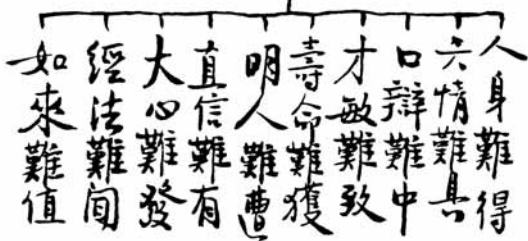 人身難得
六情難具
口辯難中
才敏難致
壽命難獲
明人難遭
直信難有
大心難發
經法難聞
如來難值